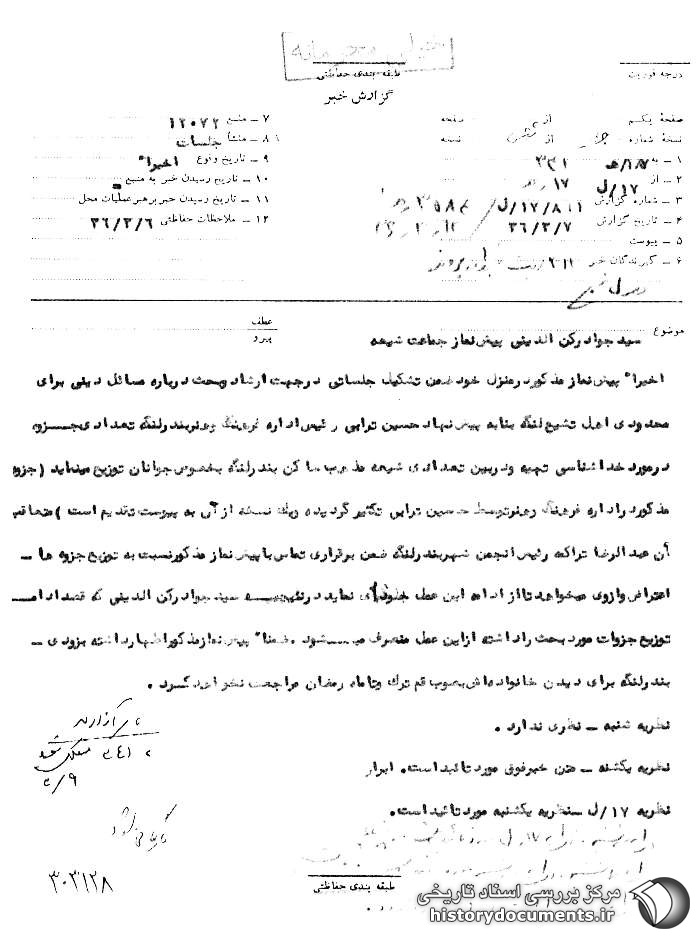 خیلی محرمانه
طبقه بندی حفاظتی
درجه فوریت
گزارش خبر
صفحه یکم از صفحه
نسخه شماره از نسخه
۱ - به ۳۳۱
۲ - از ۱۷/ل
۳ - شماره گزارش ۱۷/۸۰۱/ل
۴ - تاریخ گزارش ۳۶/۳/۷
۵ - پیوست
۶ - گیرندگان خبر
۷ - منبع ۱۲۰۷۲
۸ - منشأ جلسات
۹ - تاریخ وقوع اخیراً
۱۰ - تاریخ رسیدن خبر به منبع
۱۱ - تاریخ رسیدن خبر برهبر عملیات محل
۱۲ - ملاحظات حفاظتی ۳۶/۳/۶
موضوع سید جواد رکن الدینی پیش‌نماز جماعت شیعه
عطف
پیرو
اخیراً پیش‌نماز مذکور در منزل خود ضمن تشکیل جلساتی در جهت ارشاد و بحث درباره مسائل دینی برای
معدودی اهل تشیع لنگه بنا به پیش نهاد حسین ترابی رئیس اداره فرهنگ و هنر بندرلنگه تعدادی جزوه
در مورد خداشناسی تهیه و در بین تعدادی شیعه مذهب ساکن بندرلنگه بخصوص جوانان توزیع مینماید (جزوه
مذکور در اداره فرهنگ و هنر توسط حسین ترابی تکثیر گردیده و یک نسخه از آن به پیوست تقدیم است) متعاقب
آن عبدالرضا تراکمه رئیس انجمن شهر بندرلنگه ضمن برقراری تماس با پیش نماز مذکور نسبت به توزیع جزوه ها -
اعتراض و از وی میخواهد تا از ادامه این عمل جلوگیری نماید در نتیجه سید جواد رکن الدینی که قصد ادامه
توزیع جزوات مورد بحث را داشته از این عمل منصرف میشود . ضمناً پیش نماز مذکور اظهار داشته بزودی -
بندرلنگه برای دیدن خانواده‌اش بصوب قم ترک و تا ماه رمضان مراجعت نخواهد کرد .
نظریه شنبه - نظری ندارد .
نظریه یکشنبه - متن خبر فوق مورد تائید است. ابرار
نظریه ۱۷/ل - نظریه یکشنبه مورد تائید است.
۳/۹
۳۰۳۱۲۸
طبقه بندی حفاظتی
مرکز بررسی اسناد تاریخی
historydocuments.ir